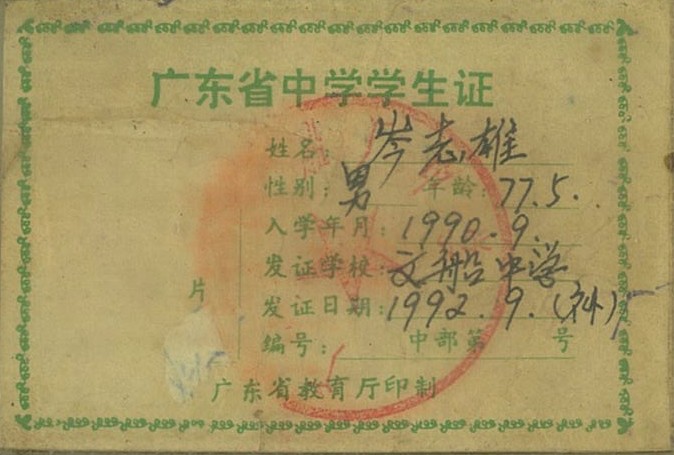 广东省中学学生证
姓名：岑志雄
性别：男 年龄：77.5.
入学年月：1990.9.
发证学校：文船中学
发证日期：1992.9.(补)
片
编号： 中部第 号
广东省教育厅印制